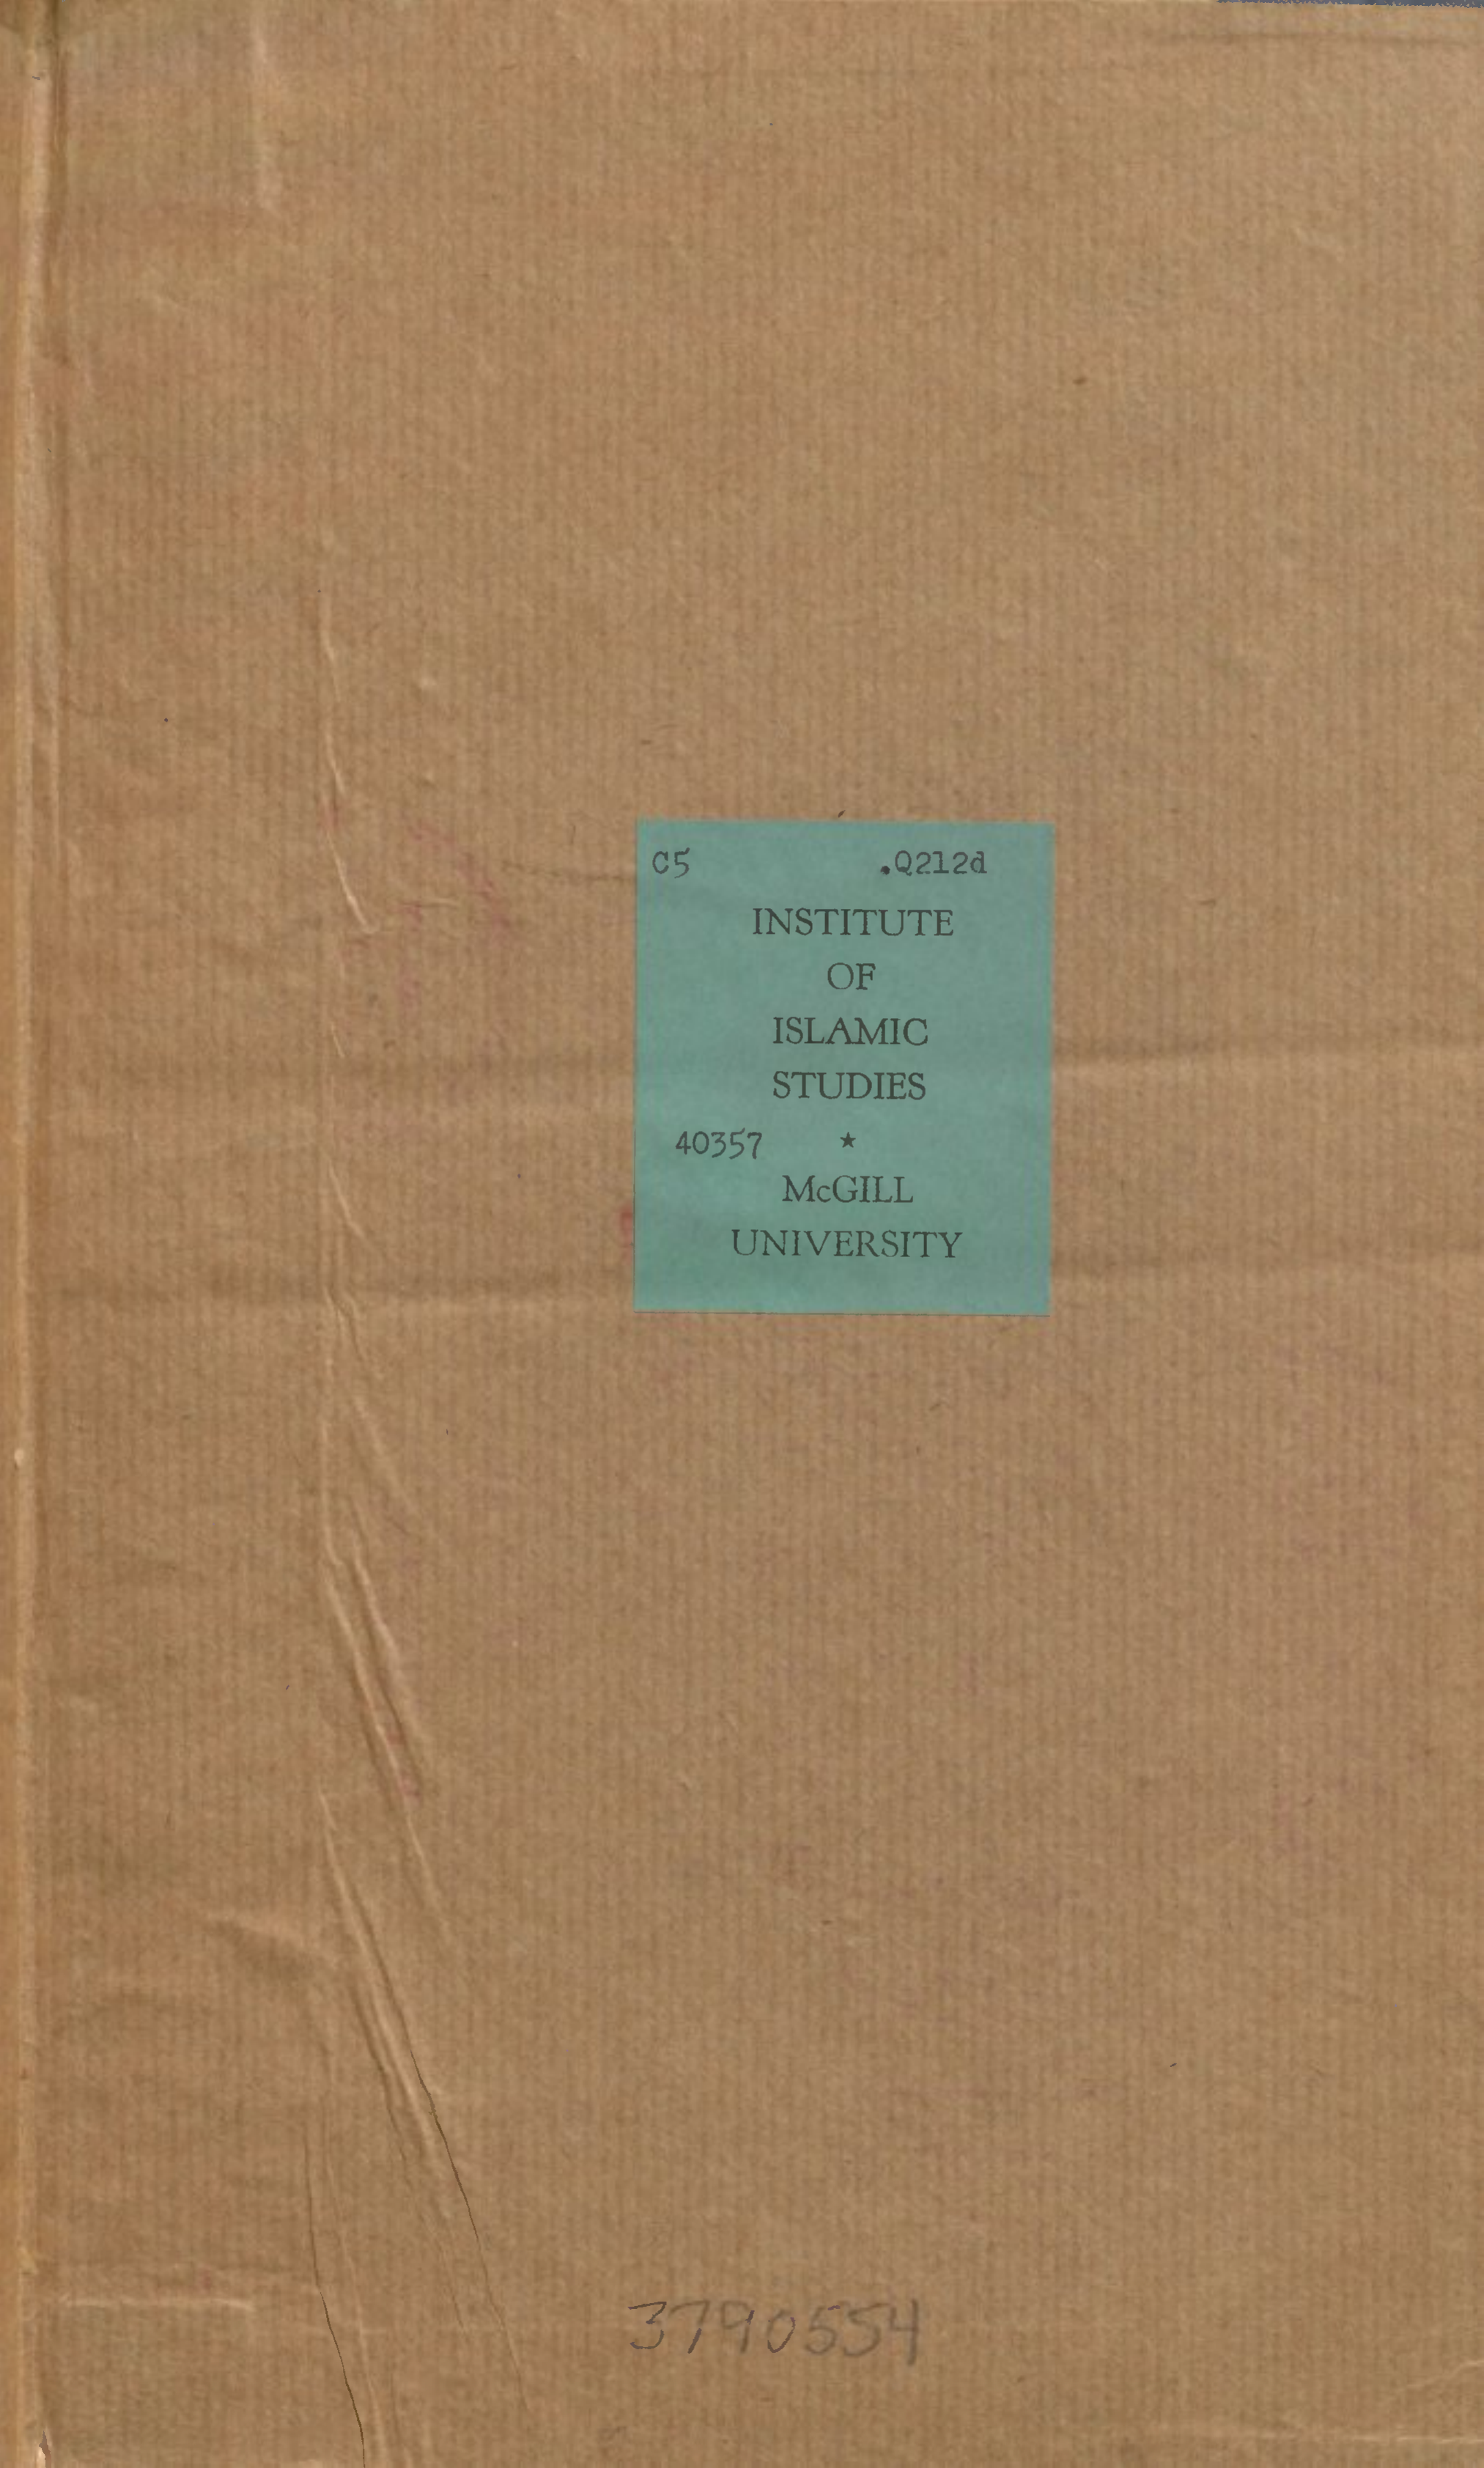 C5 .Q212d
INSTITUTE
OF
ISLAMIC
STUDIES
40357 ★
McGILL
UNIVERSITY
3790554